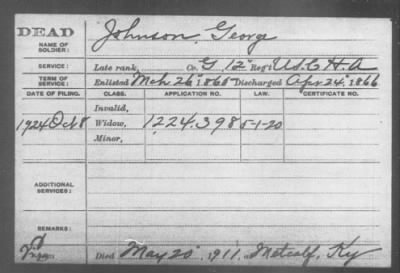 DEAD
NAME OF SOLDIER: Johnson, Georg
SERVICE: Late rank, Co. G 12" Reg't U.S.C.H.A
TERM OF SERVICE: Enlisted Mch 26" 1865 Discharged Apr 24", 1866
DATE OF FILING. CLASS. APPLICATION NO. LAW. CERTIFICATE NO.
Invalid,
1924 Oct 8 Widow, 1224.398 5-1-20
Minor,
ADDITIONAL SERVICES:
REMARKS:
Died May 20", 1911, at Metcalf, Ky